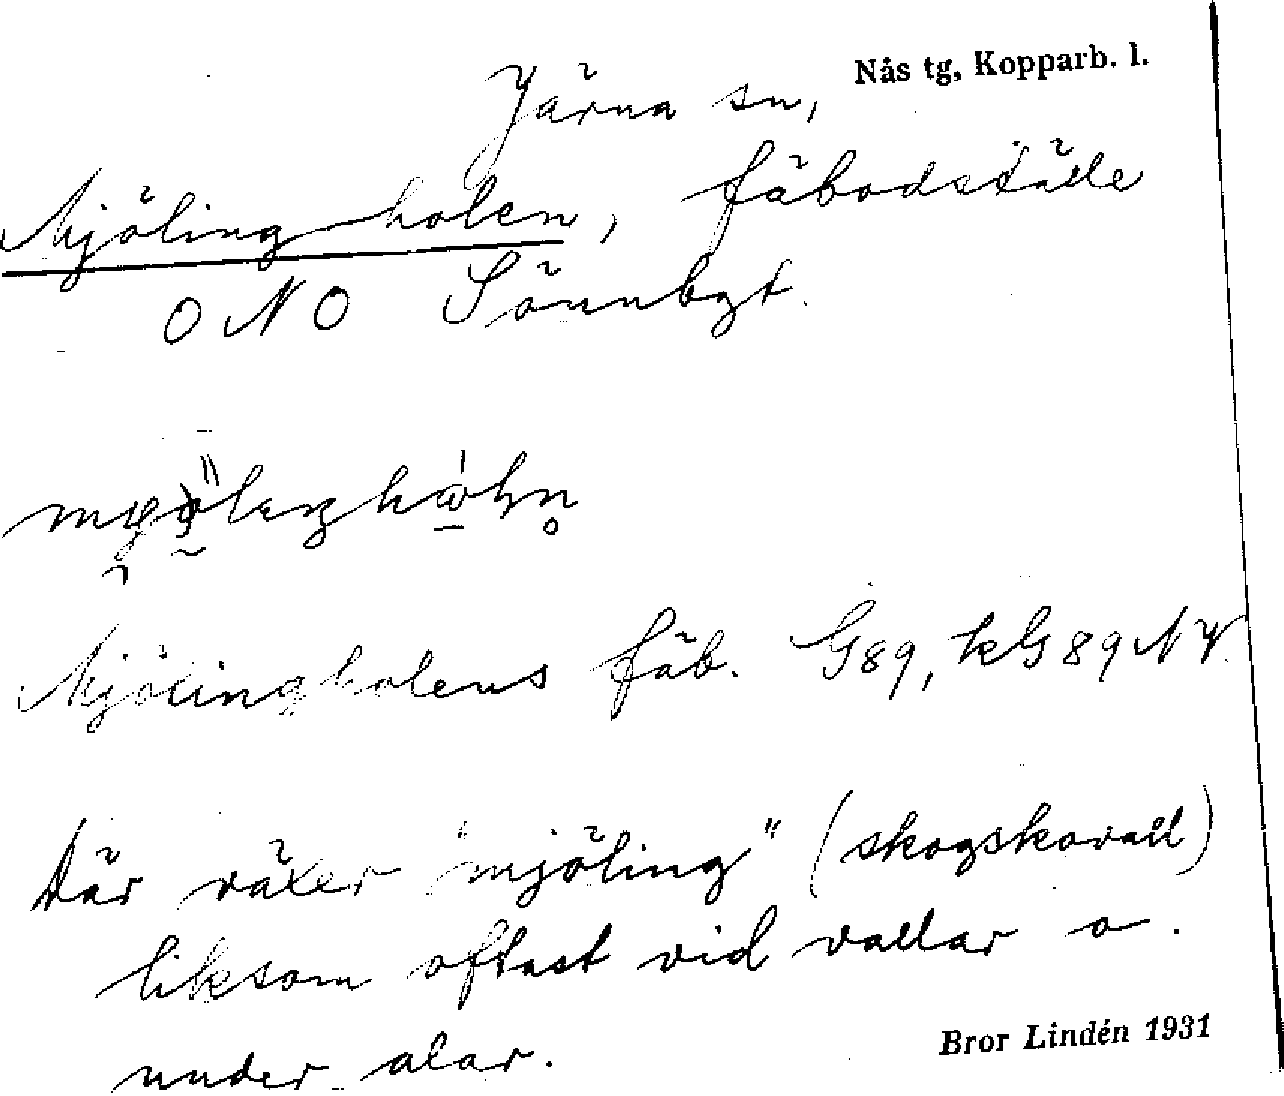 Nås tg, Kopparb. l.
Järna sn,
Mjölingholen, fäbodställe
ONO Sönnbgt.
Mjölingholens fäb. G89, kG89NV.
Där växer "mjöling" (skogskovall)
liksom oftast vid vallar o.
under alar.
Bror Lindén 1931